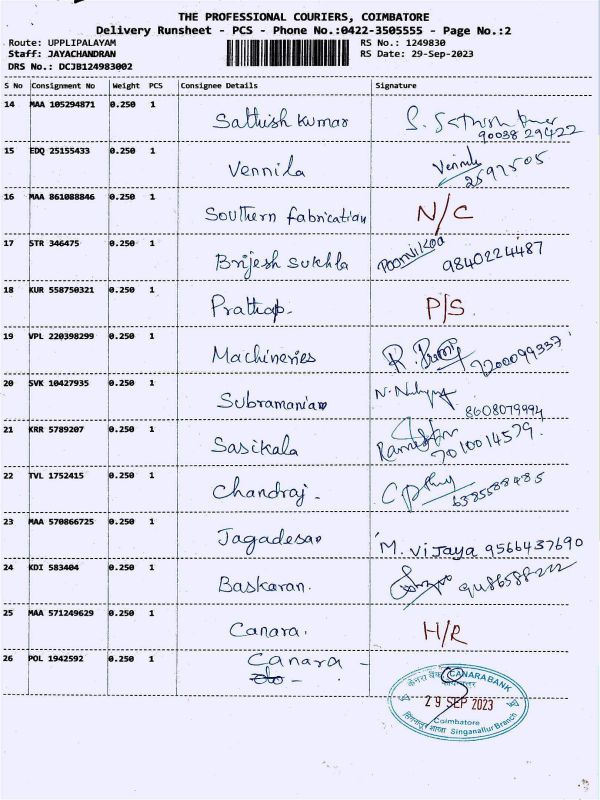 THE PROFESSIONAL COURIERS, COIMBATORE
Delivery Runsheet - PCS - Phone No.:0422-3505555 - Page No.:2
Route: UPPLIPALAYAM RS No.: 1249830
Staff: JAYACHANDRAN RS Date: 29-Sep-2023
DRS No.: DCJB124983002
S No Consignment No Weight PCS Consignee Details Signature
14 MAA 105294871 0.250 1 Sathish Kumar S. Sathish Kumar
90038 29422
15 EDQ 25155433 0.250 1 Vennila Vennila
2597505
16 MAA 861088846 0.250 1 Southern fabrication N/C
17 STR 346475 0.250 1 Brijesh Sukhla 9840224487
18 KUR 558750321 0.250 1 Prathap. P/S
19 VPL 220398299 0.250 1 Machineries 7200099337
20 SVK 10427935 0.250 1 Subramanian
8608079994
21 KRR 5789207 0.250 1 Sasikala
7010014579.
22 TVL 1752415 0.250 1 Chandraj.
6385588485
23 MAA 570866725 0.250 1 Jagadesan M. Vijaya 9566437690
24 KDI 583404 0.250 1 Baskaran.
25 MAA 571249629 0.250 1 Canara. H/R
26 POL 1942592 0.250 1 Canara -
केनरा बैंक CANARA BANK
29 SEP 2023
Coimbatore
Singanallur Branch